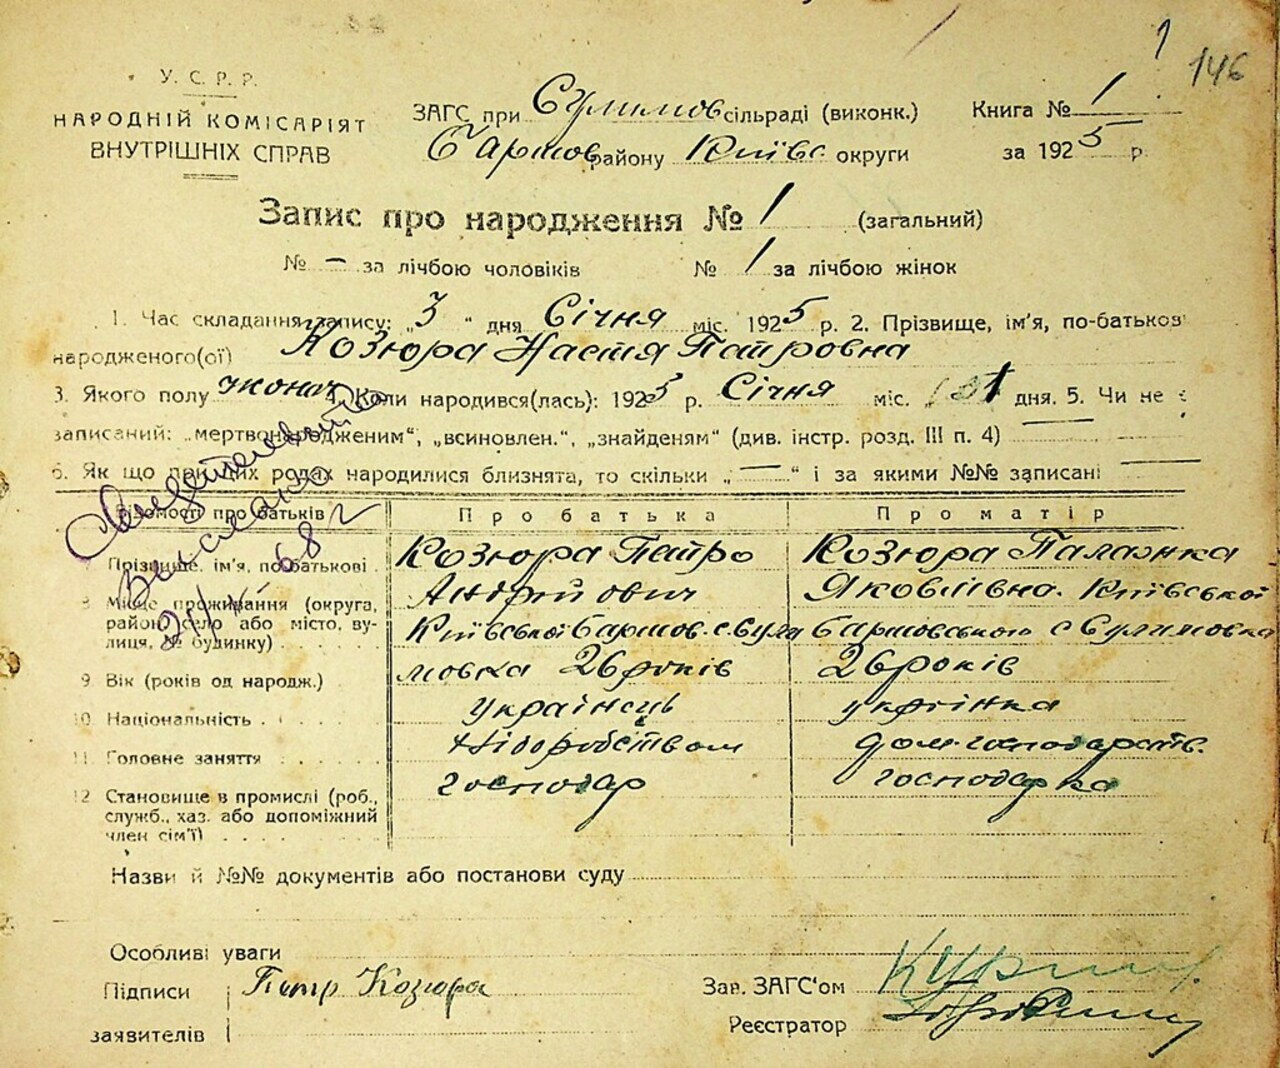 1
146
У. С. Р. Р.
НАРОДНІЙ КОМІСАРІЯТ
ВНУТРІШНІХ СПРАВ
ЗАГС при Сулимов сільраді (виконк.)
Баришов району Київс. округи
Книга № 1
за 1925 р.
Запис про народження № 1 (загальний)
№ — за лічбою чоловіків № 1 за лічбою жінок
1. Час складання запису: „3“ дня Січня міс. 1925 р. 2. Прізвище, ім'я, по-батьков
народженого(ої) Козюра Настя Петровна
3. Якого полу жоноч 4. Коли народився(лась): 1925 р. Січня міс. 1 дня. 5. Чи не є
записаний: „мертвонародженим“, „всиновлен.“, „знайденям“ (див. інстр. розд. III п. 4) —
6. Як що при цих родах народилися близнята, то скільки „—“ і за якими №№ записані —
Відомості про батьків Про батька Про матір
7 Прізвище, ім'я, по-батькові Козюра Петро Козюра Палажка
Андрійович Яковлівна. Київської
8 Місце проживання (округа, район, село або місто, вулиця, № будинку) Київської Баришов. с. Сули Баришовського с Сулимовка
9 Вік (років од народж.) мовка 26 років 26 років
10 Національність українець укрїнка
11 Головне заняття Хліборобством дом-господарств.
12 Становище в промислі (роб., господар господарка
служб., хаз. або допоміжний
член сім'ї)
Свидетельство
выслано
68 г
Назви й №№ документів або постанови суду
Особливі уваги
Підписи Петр Козюра Зав. ЗАГС'ом
заявителів Реєстратор